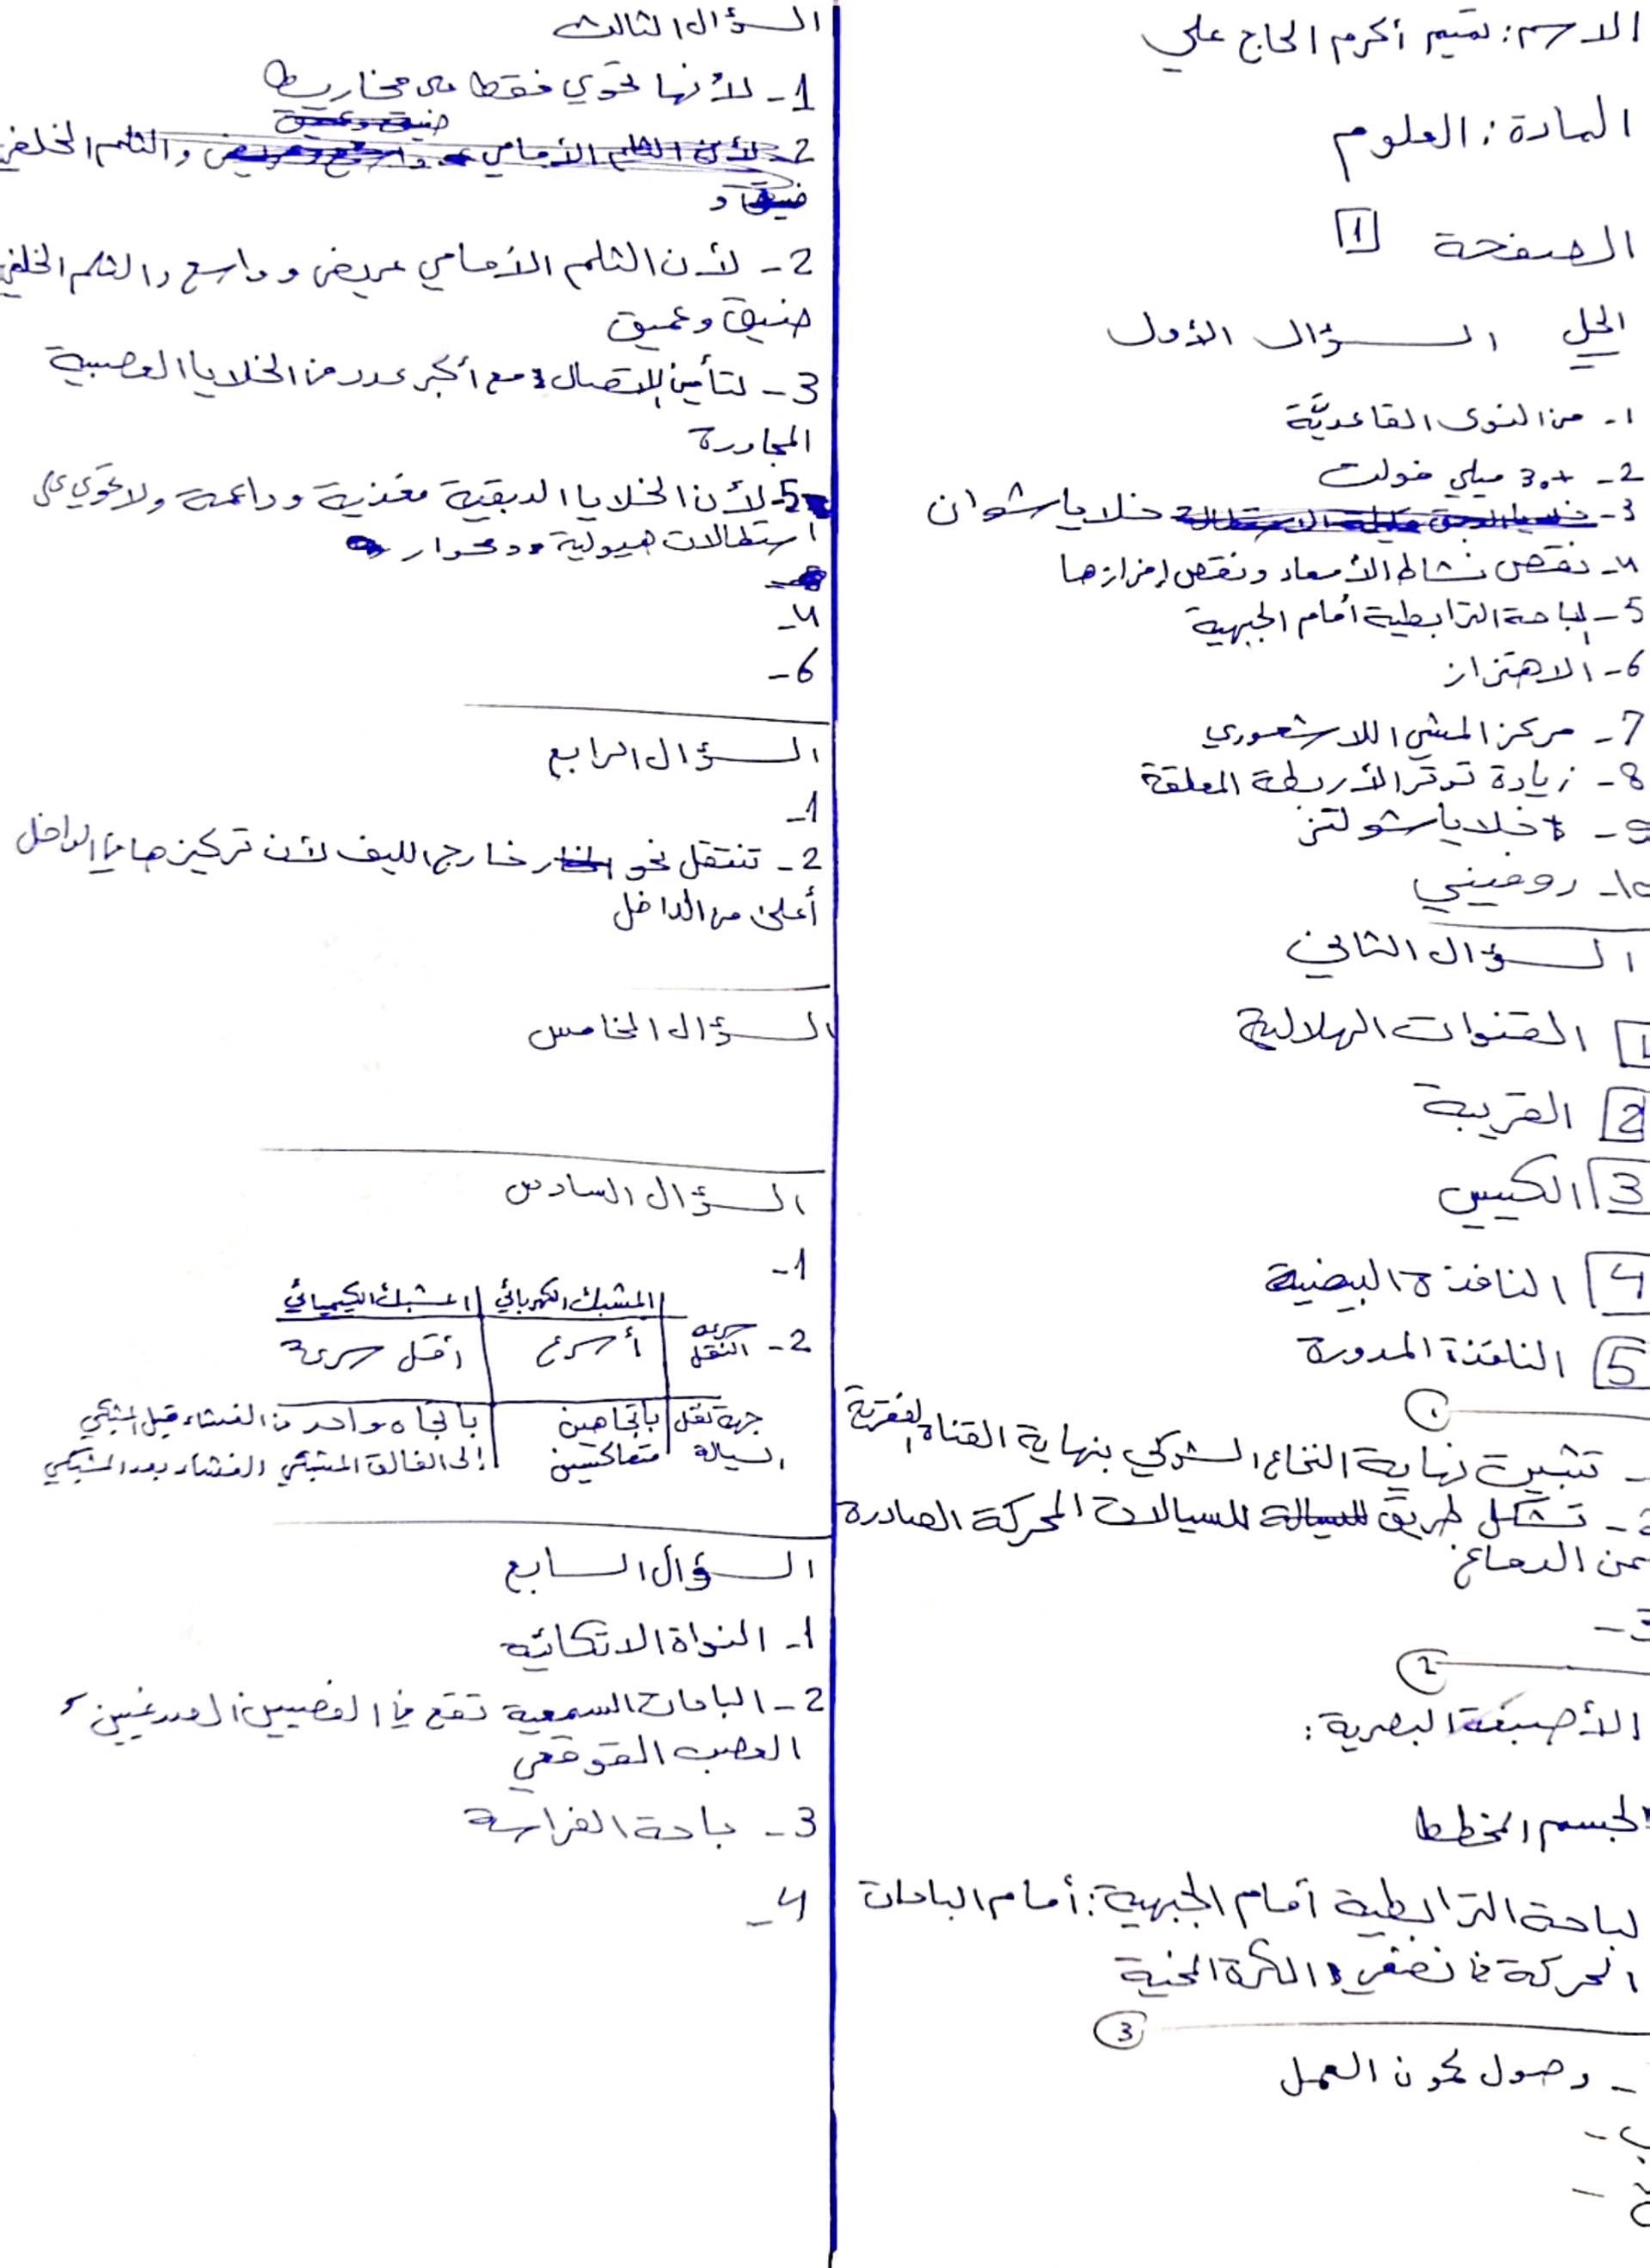 الاسم: تميم أكرم الحاج علي
المادة: العلوم
الصفحة 1
الحل السؤال الأول
1- من النوى القاعديَّة
2- +30 ميلي فولت
3- خلايا شوان
4- نقص نشاط الأمعاء ونقص إفرازها
5- الباحة الترابطية أمام الجبهية
6- الاهتزاز
7- مركز المشي اللاشعوري
8- زيادة توتر الأربطة المعلقة
9- خلايا شولتز
10- روفيني
السؤال الثاني
1 القنوات الهلالية
2 القريبة
3 الكييس
4 النافذة البيضية
5 النافذة المدورة
1
- تثبيت نهاية النخاع الشوكي بنهاية القناة الفقرية
2- تشكل طريق للسيالات المحركة الصادرة
عن الدماغ
3-
2
الأصبغة البصرية:
الجسم المخطط
لباحة الترابطية أمام الجبهية: أمام الباحات
الحركة في نصفي الكرة المخية
3
- وصول كمون العمل
ب-
ج-
السؤال الثالث
1- لأنها تحوي فقط مخاريط
2- لأن الثلم الأمامي والثلم الخلفي
ضيق و
2- لأن الثلم الأمامي عريض وواسع والثلم الخلفي
ضيق وعميق
3- لتأمين الاتصال مع أكبر عدد من الخلايا العصبية
المجاورة
5- لأن الخلايا الدبقية مغذية وداعمة ولا تحوي على
استطالات هيولية ومحوار
4-
6-
السؤال الرابع
1-
2- تنتقل نحو خارج الليف لأن تركيزها في الداخل
أعلى من الداخل
السؤال الخامس
السؤال السادس
1-
المشبك الكهربائي | المشبك الكيميائي
2- سرعة النقل | أسرع | أقل سرعة
جهة نقل السيالة | باتجاهين متعاكسين | باتجاه واحد من الغشاء قبل المشبكي
إلى الفالق المشبكي والغشاء بعد المشبكي
السؤال السابع
1- النواة الاتكائية
2- الباحات السمعية تقع في الفصيين الصدغيين،
العصب القوقعي
3- باحة الفراسة
4-